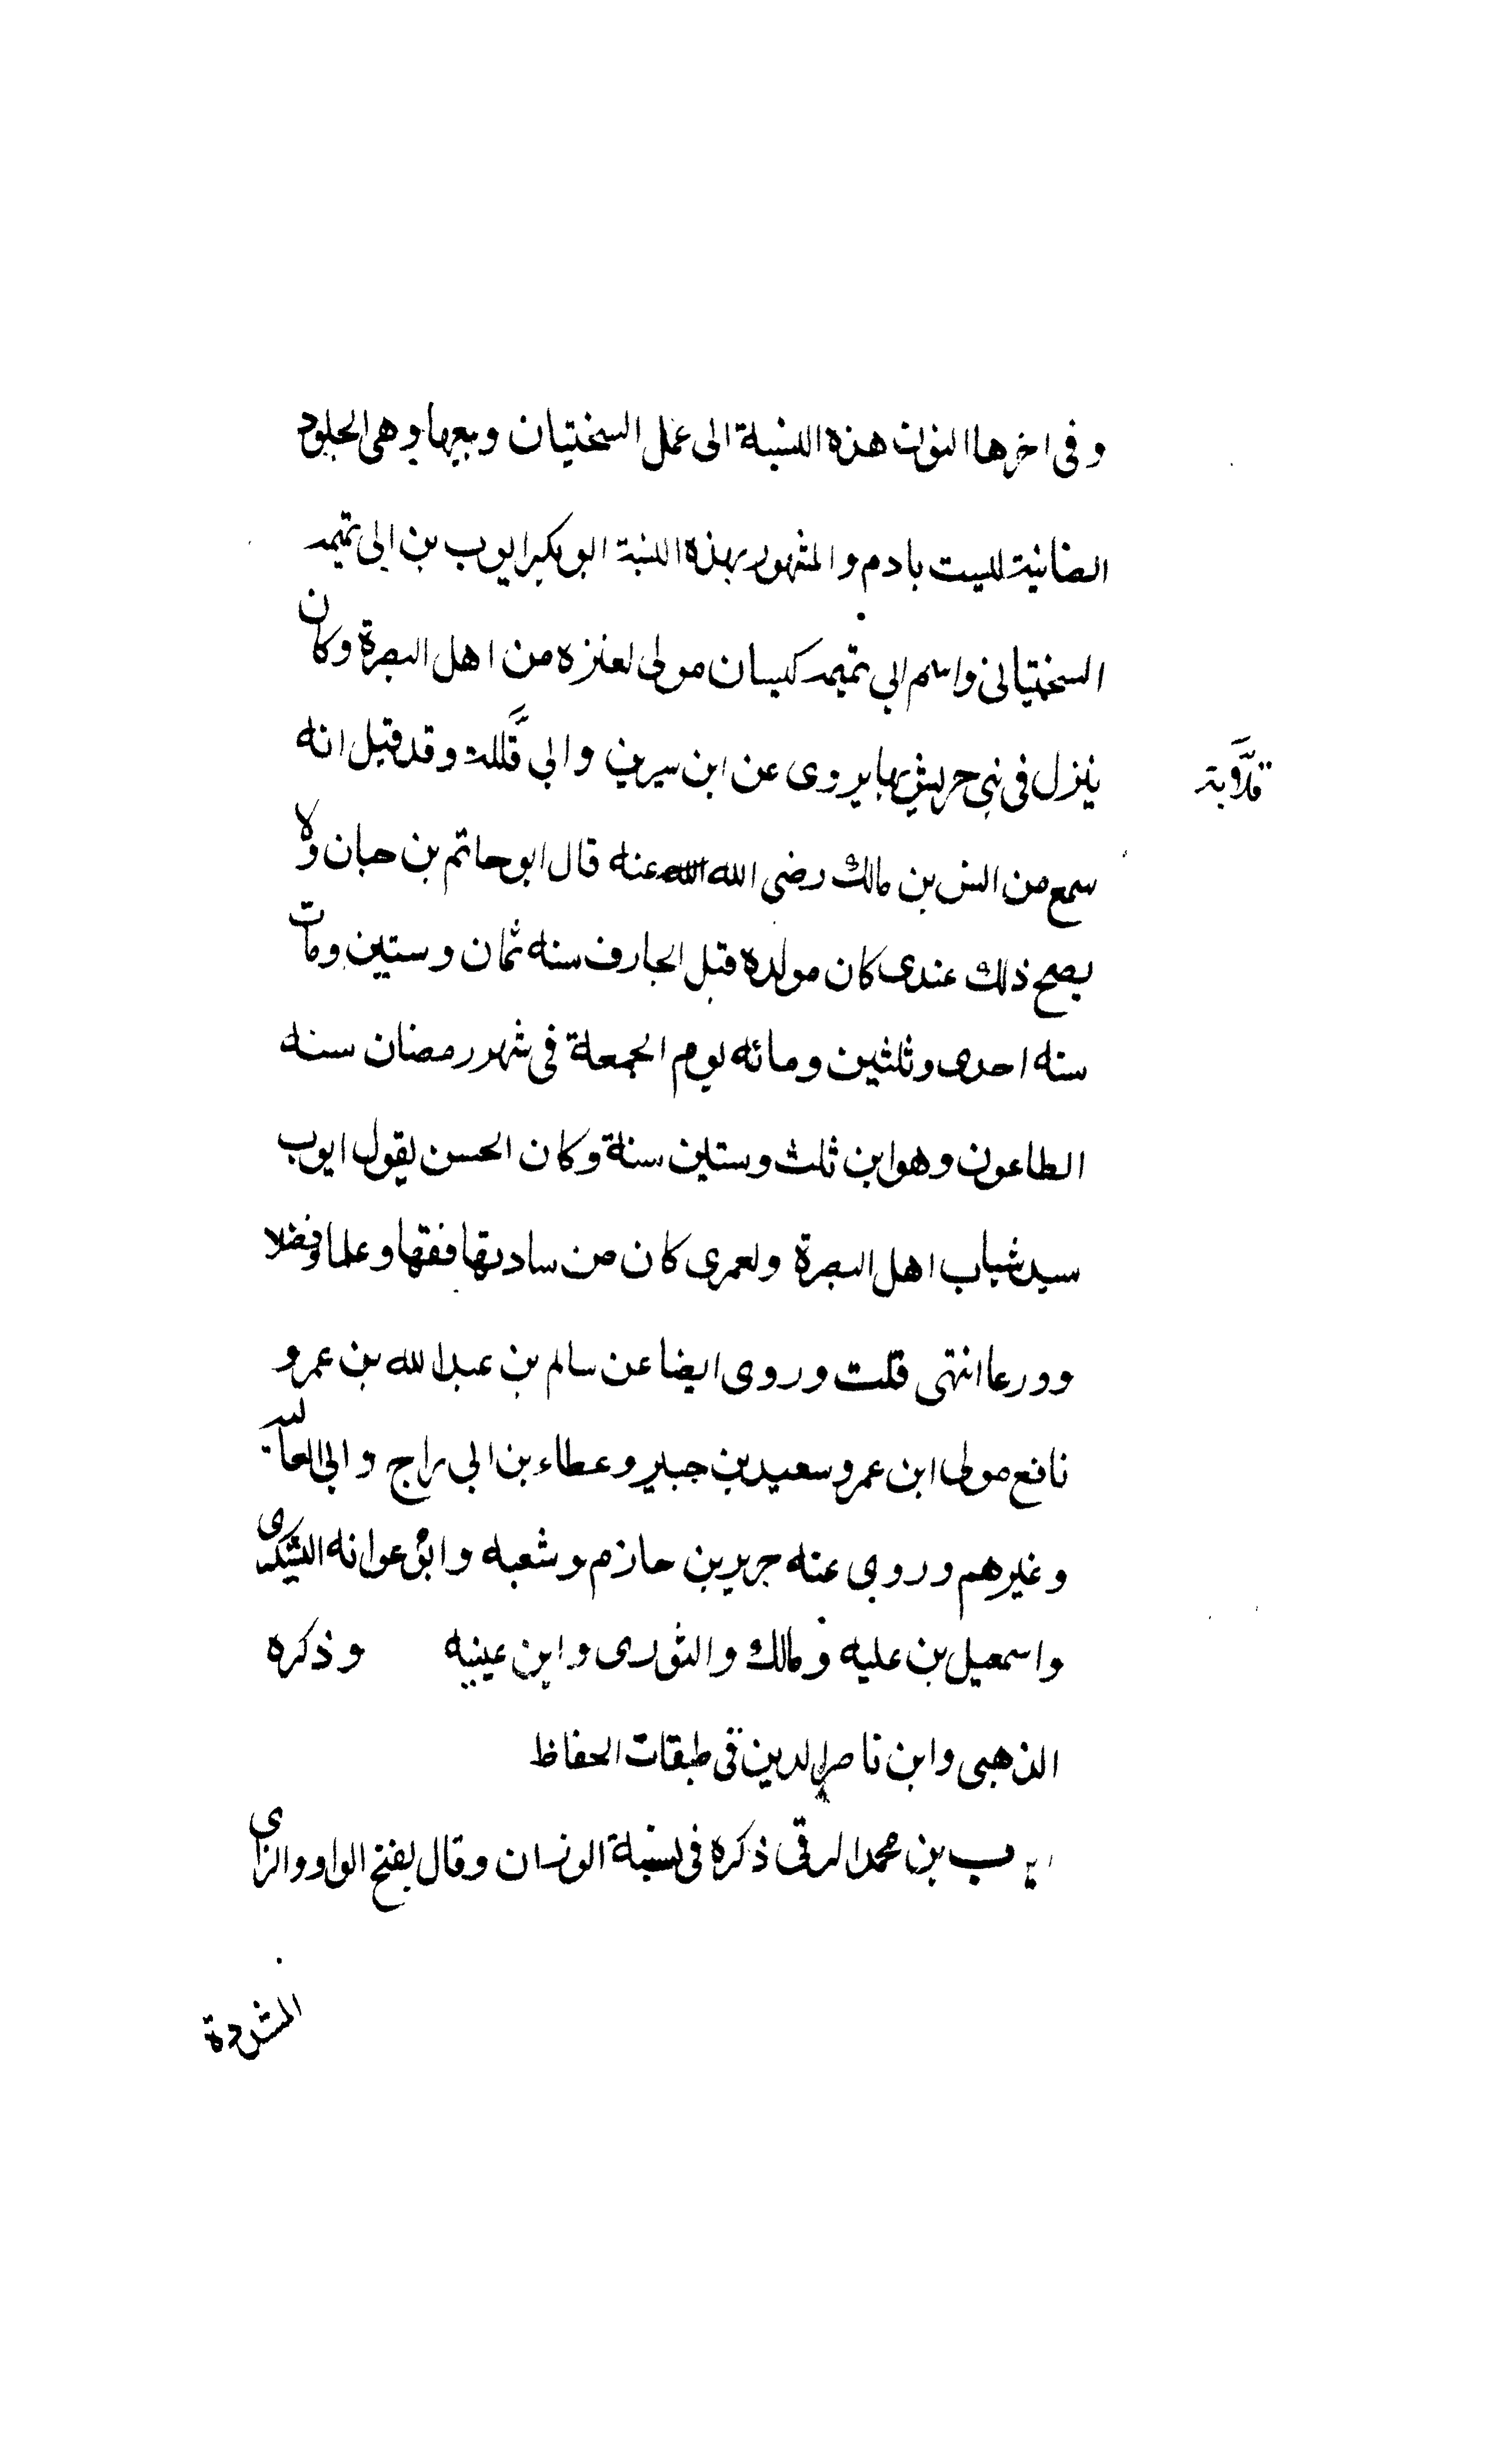 وفى اخرها النون هذه النسبة الى عمل السختيان وبيعها وهى الجلود
الضانية ليست بادم والمشهور بهذه النسبة ابو بكر ايوب بن ابى تميمه
السختيانى واسم ابى تميمه كيسان مولى لعنزه من اهل البصرة وكان
ينزل فى بنى حريش بها يروى عن ابن سيرين وابى قلابة وقد قيل انه
قلابة
سمع من انس بن مالك رضى الله عنه قال ابو حاتم بن حبان ولا
يصح ذلك عندى كان مولده قبل الجارف سنه ثمان وستين ومات
سنه احدى وثلثين ومائه يوم الجمعة فى شهر رمضان سنه
الطاعون وهو ابن ثلث وستين سنة وكان الحسن يقول ايوب
سيد شباب اهل البصرة ولعمرى كان من ساداتها فقها وعلما وفضلا
وورعا انتهى قلت وروى ايضا عن سالم بن عبد الله بن عمر و
نافع مولى ابن عمر وسعيد بن جبير وعطاء بن ابى راج وابى العالية
وغيرهم وروى عنه جرير بن حازم وشعبه وابو عوانه اليشكرى
واسمعيل بن عليه ومالك والثورى وابن عيينه وذكره
الذهبى وابن ناصر الدين فى طبقات الحفاظ
ايوب بن محمد الرقى ذكره فى نسبة الوزان وقال بفتح الواو والزاى
المشددة